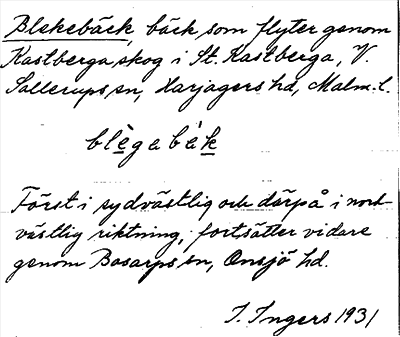 Blekebäck, bäck som flyter genom
Kastberga skog i St. Kastberga, V.
Sallerups sn, Harjagers hd, Malm. l.
blègabák
Först i sydvästlig och därpå i nord-
västlig riktning, fortsätter vidare
genom Bosarps sn, Onsjö hd.
I. Ingers 1931